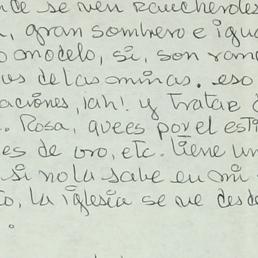 se ven rancheros
, gran sombrero e igua
modelo, si, son
os de las minas. eso
aciones, ¡ah! y tratar
. Rosa, que es por el esti
es de oro, etc. tiene un
si no la sabe en mi
o, la iglesia se ve desde
.